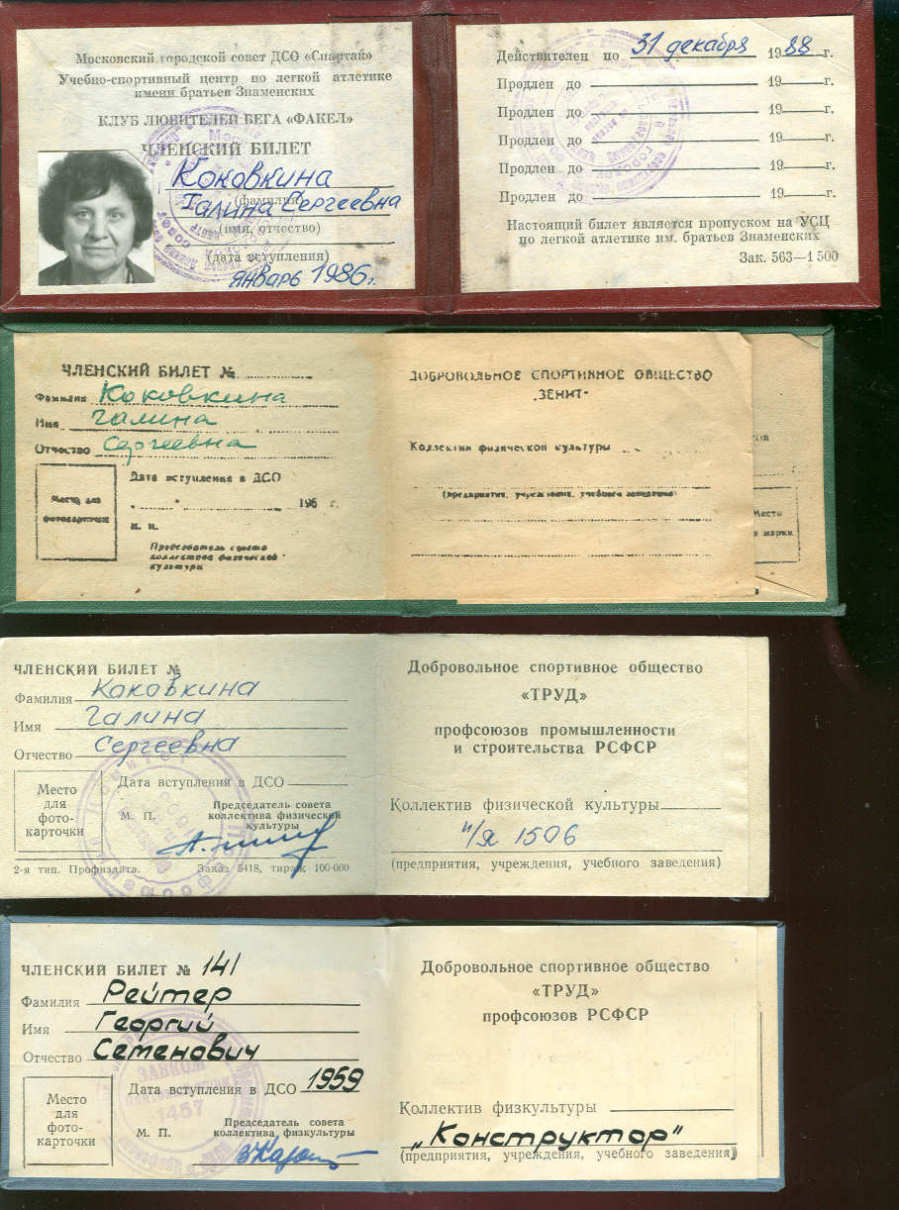 Московский городской совет ДСО «Спартак»
Учебно-спортивный центр по легкой атлетике
имени братьев Знаменских
КЛУБ ЛЮБИТЕЛЕЙ БЕГА «ФАКЕЛ»
ЧЛЕНСКИЙ БИЛЕТ
Коковкина
(фамилия)
Галина Сергеевна
(имя, отчество)
(дата вступления)
январь 1986г.
Действителен по 31 декабря 1988 г.
Продлен до 19 г.
Продлен до 19 г.
Продлен до 19 г.
Продлен до 19 г.
Продлен до 19 г.
Настоящий билет является пропуском на УСЦ
по легкой атлетике им. братьев Знаменских
Зак. 563—1 500
ЧЛЕНСКИЙ БИЛЕТ №
Фамилия Коковкина
Имя Галина
Отчество Сергеевна
Место для
фотокарточки
Дата вступления в ДСО
196 г.
м. п.
Председатель совета
коллектива физической
культуры
ДОБРОВОЛЬНОЕ СПОРТИВНОЕ ОБЩЕСТВО
„ЗЕНИТ"
Коллектив физической культуры
(предприятия, учреждения, учебного заведения)
Место
марки
ЧЛЕНСКИЙ БИЛЕТ №
Фамилия Коковкина
Имя Галина
Отчество Сергеевна
Место
для
фото-
карточки
Дата вступления в ДСО
М. П.
Председатель совета
коллектива физической
культуры
2-я тип. Профиздата. Заказ 5418, тираж 100 000
Добровольное спортивное общество
«ТРУД»
профсоюзов промышленности
и строительства РСФСР
Коллектив физической культуры
п/я 1506
(предприятия, учреждения, учебного заведения)
ЧЛЕНСКИЙ БИЛЕТ № 141
Фамилия Рейтер
Имя Георгий
Отчество Семенович
Место
для
фото-
карточки
Дата вступления в ДСО 1959
М. П.
Председатель совета
коллектива физкультуры
ЗАВКОМ
1457
Добровольное спортивное общество
«ТРУД»
профсоюзов РСФСР
Коллектив физкультуры
„Конструктор"
(предприятия, учреждения, учебного заведения)